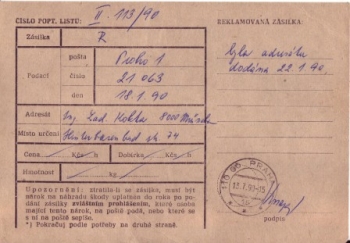 ČÍSLO POPT. LISTU: II 113/90
REKLAMOVANÁ ZÁSILKA:
Zásilka R
pošta Praha 1
Podací číslo 21 063
den 18.1.90
byla adresátu
dodána 22.1.90.
Adresát Ing. Lad. 8000
Místo určení str 74
Cena Kčs h Dobírka Kčs h
Hmotnost kg
Upozornění: ztratila-li se zásilka, musí být
nárok na náhradu škody uplatněn do roka po
podání zásilky zvláštním prohlášením, které osoba
mající tento nárok, na poště podá, nebo které se
s ní na poště sepíše.
*) Pokračuj podle potřeby na druhé straně.
PRAHA
podpis